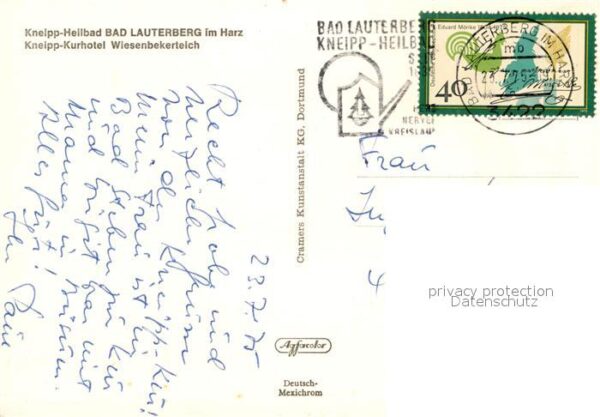 Kneipp-Heilbad BAD LAUTERBERG im Harz
Kneipp-Kurhotel Wiesenbekerteich
23.7.75
Recht frohe und
herzliche Grüsse
von der Kneipp-Kur!
Mein Frau ist in
Bad Steben zur Kur
und
Mama in Büsum.
Alles Gute!
Ihr
Cramers Kunstanstalt KG, Dortmund
Agfacolor
Deutsch-
Mexichrom
BAD LAUTERBERG
KNEIPP-HEILBAD
NERVEN
KREISLAUF
Eduard Mörike
40
BAD LAUTERBERG IM HARZ
mb
23.7.75
3422
Frau
4
privacy protection
Datenschutz